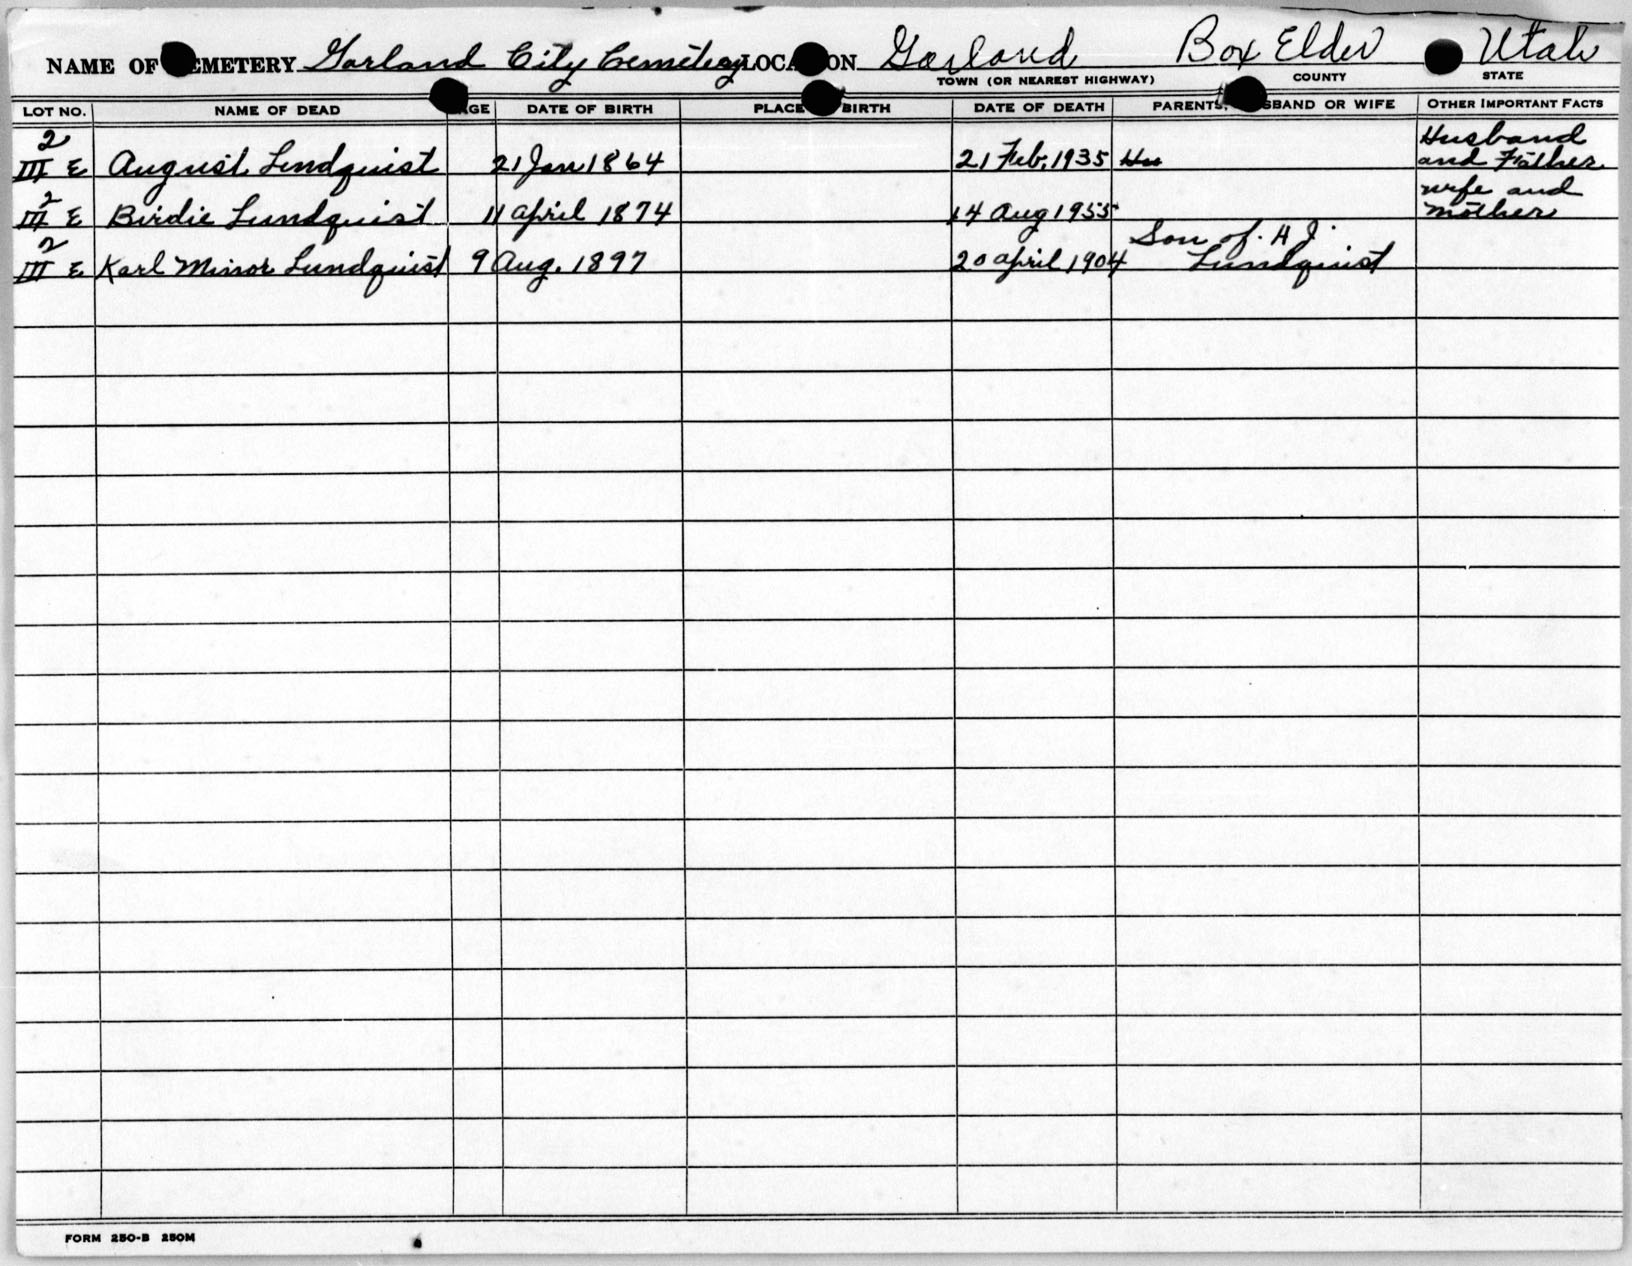 NAME OF CEMETERY Garland City Cemetery LOCATION Garland Box Elder Utah
TOWN (OR NEAREST HIGHWAY) COUNTY STATE
LOT NO. NAME OF DEAD AGE DATE OF BIRTH PLACE BIRTH DATE OF DEATH PARENTS, HUSBAND OR WIFE OTHER IMPORTANT FACTS
2 Husband
III E August Lundquist 21 Jan 1864 21 Feb. 1935 Hu and Father
2 wife and
III E Birdie Lundquist 11 april 1874 14 Aug 1955 Mother
2 Son of H J.
III E Karl Minor Lundquist 9 Aug. 1897 20 april 1904 Lundquist
FORM 250-B 250M